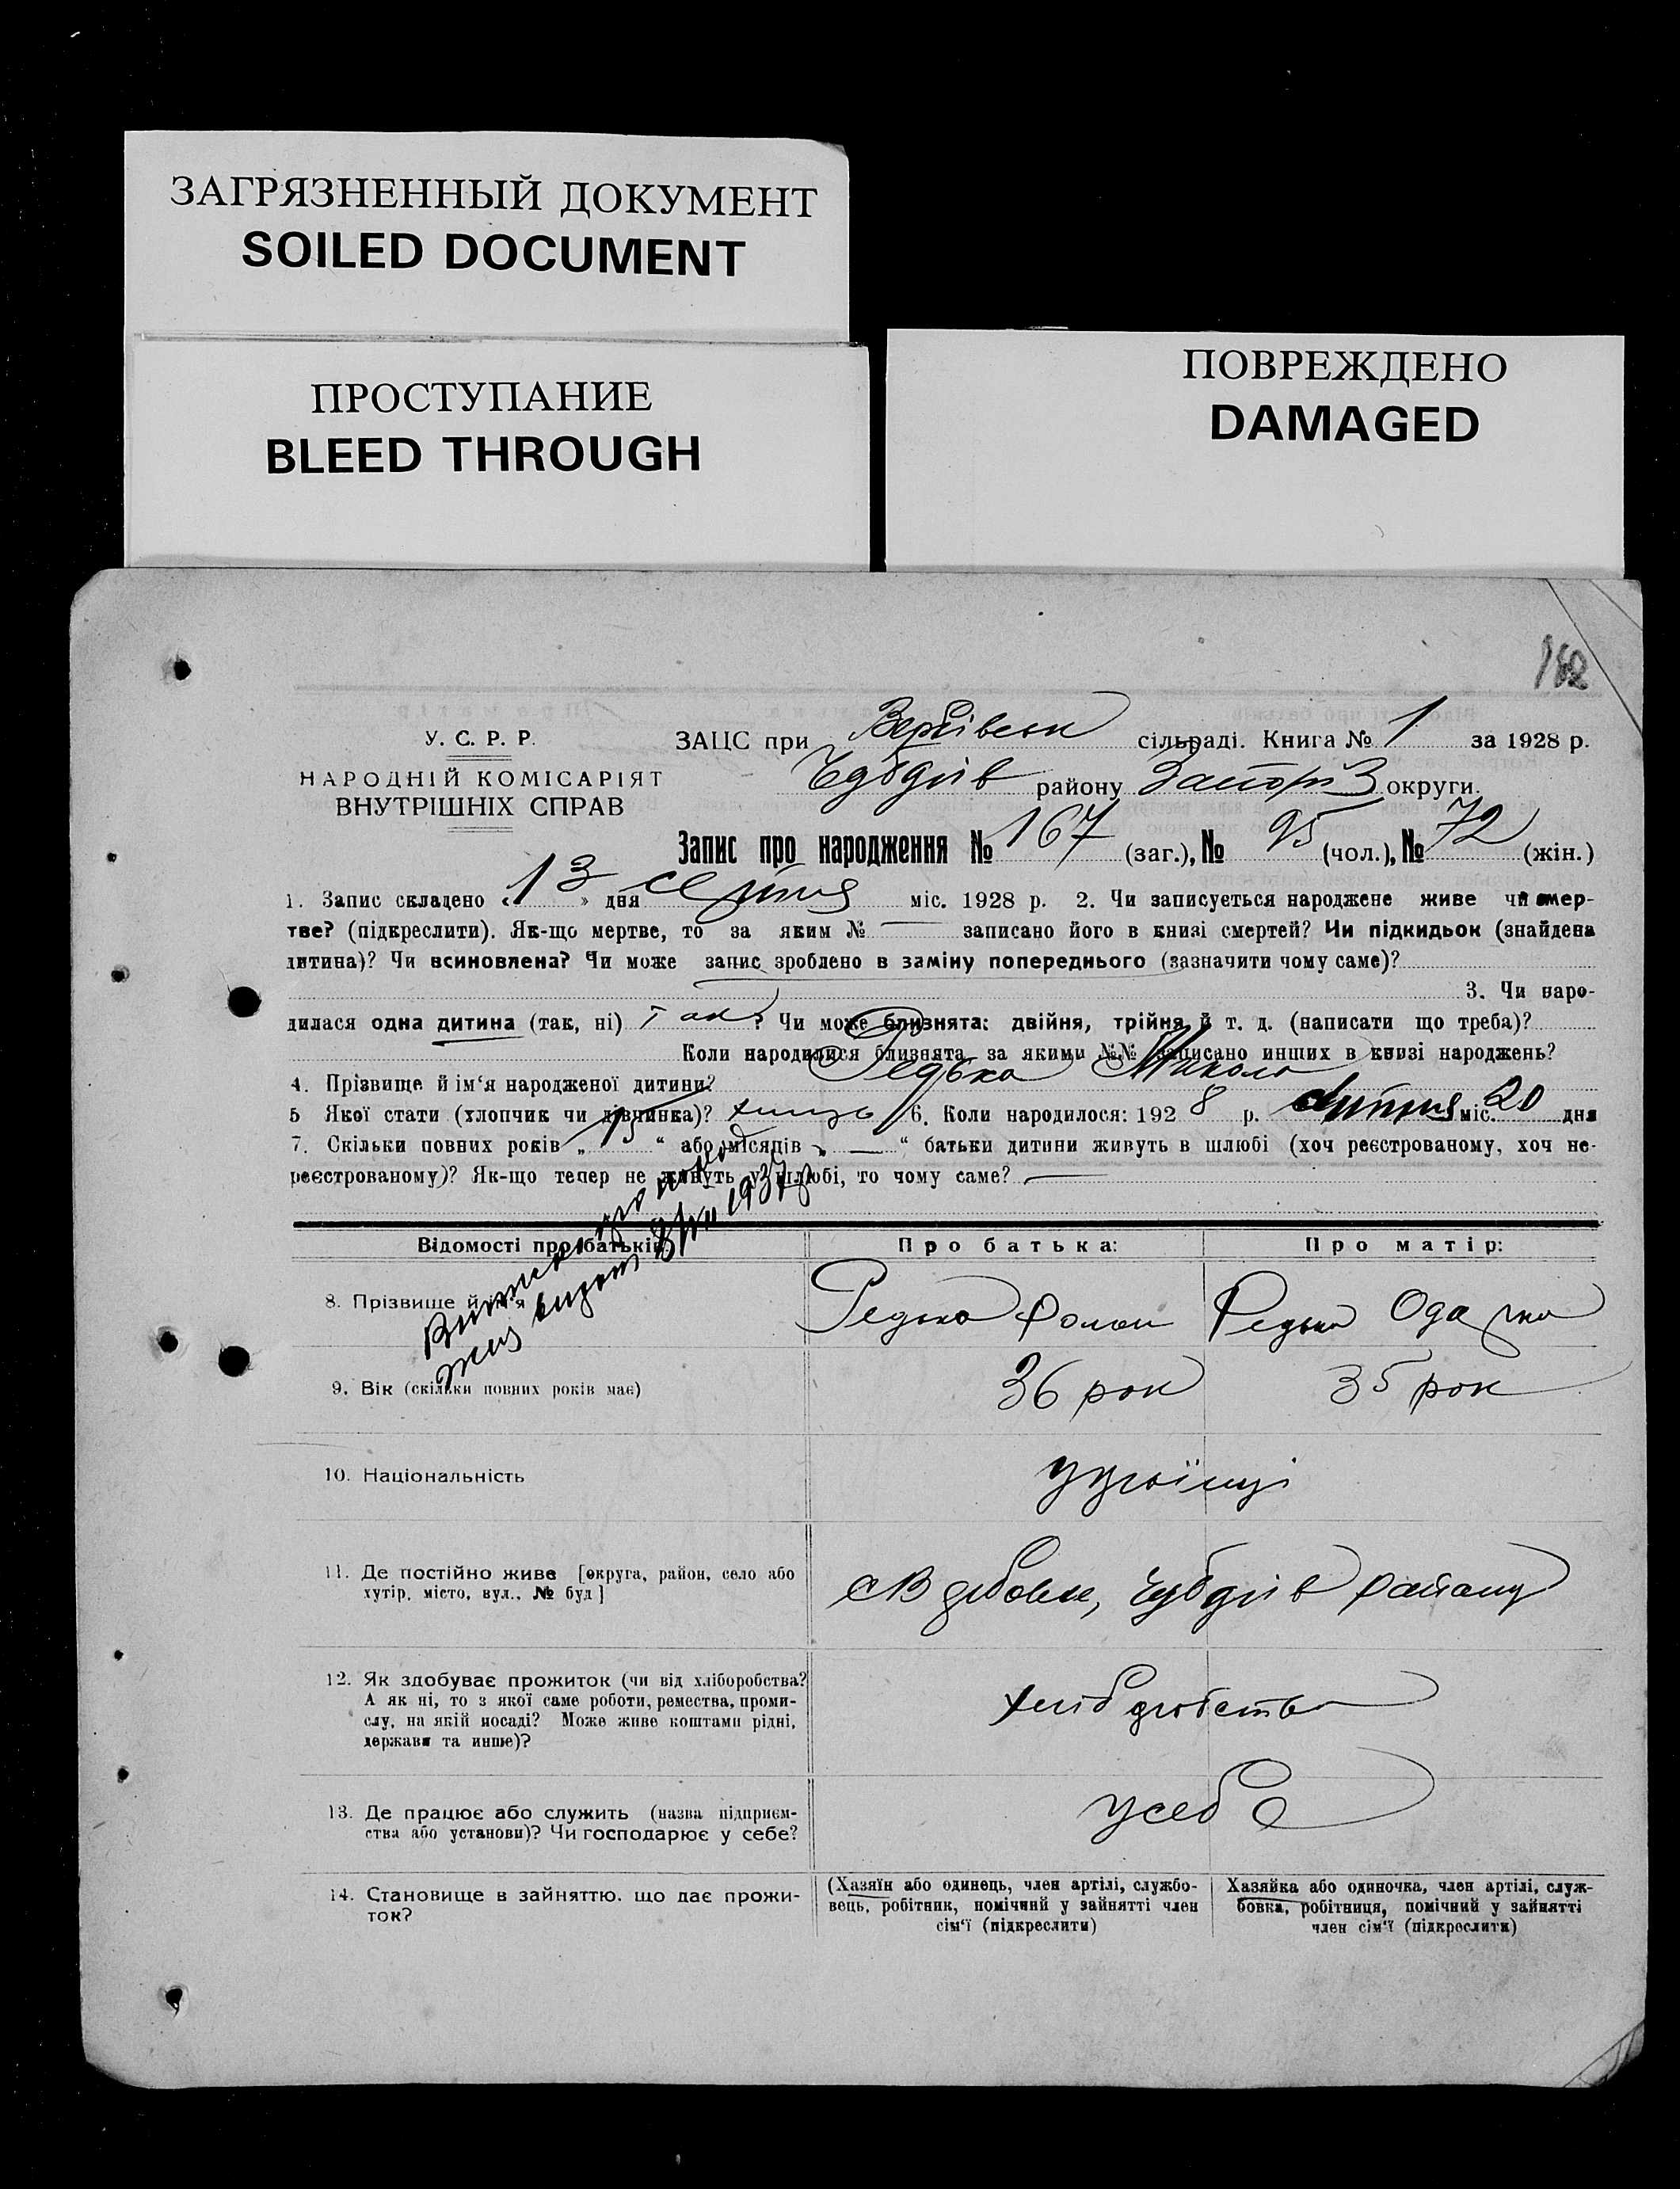 ЗАГРЯЗНЕННЫЙ ДОКУМЕНТ
SOILED DOCUMENT
ПРОСТУПАНИЕ
BLEED THROUGH
ПОВРЕЖДЕНО
DAMAGED
182
У. С. Р. Р.
НАРОДНІЙ КОМІСАРІЯТ
ВНУТРІШНІХ СПРАВ
ЗАЦС при сільраді. Книга № 1 за 1928 р.
району округи.
Запис про народження № 167 (заг.), № 95 (чол.), № 72 (жін.)
1. Запис складено « 13 » дня серпня міс. 1928 р. 2. Чи записується народжене живе чи мер-
тве? (підкреслити). Як-що мертве, то за яким № — записано його в книзі смертей? Чи підкидьок (знайдена
дитина)? Чи всиновлена? Чи може запис зроблено в заміну попереднього (зазначити чому саме)?
3. Чи наро-
дилася одна дитина (так, ні) Так ? Чи може близнята: двійня, трійня й т. д. (написати що треба)?
Коли народилися близнята за якими №№ записано инших в книзі народжень?
4. Прізвище й ім'я народженої дитини? Редька Микола
5 Якої стати (хлопчик чи дівчинка)? хлопець 6. Коли народилося: 1928 р. липня міс. 20 дня
7. Скільки повних років „ 15 “ або місяців „ — “ батьки дитини живуть в шлюбі (хоч реєстрованому, хоч не-
реєстрованому)? Як-що тепер не живуть у шлюбі, то чому саме? —
1937
Відомості про батьків:
Про батька:
Про матір:
8. Прізвище й ім'я
Редька Роман
Редька Одарка
9. Вік (скільки повних років має)
36 рок
35 рок
10. Національність
українці
11. Де постійно живе [округа, район, село або
хутір, місто, вул., № буд]
району
12. Як здобуває прожиток (чи від хліборобства?
А як ні, то з якої саме роботи, ремества, проми-
слу, на якій посаді? Може живе коштами рідні,
держави та инше)?
хліборобство
13. Де працює або служить (назва підприєм-
ства або установи)? Чи господарює у себе?
у себе
14. Становище в зайняттю, що дає прожи-
ток?
(Хазяїн або одинець, член артілі, службо-
вець, робітник, помічний у зайнятті член
сім'ї (підкреслити)
Хазяйка або одиночка, член артілі, служ-
бовка, робітниця, помічний у зайнятті
член сім'ї (підкреслити)